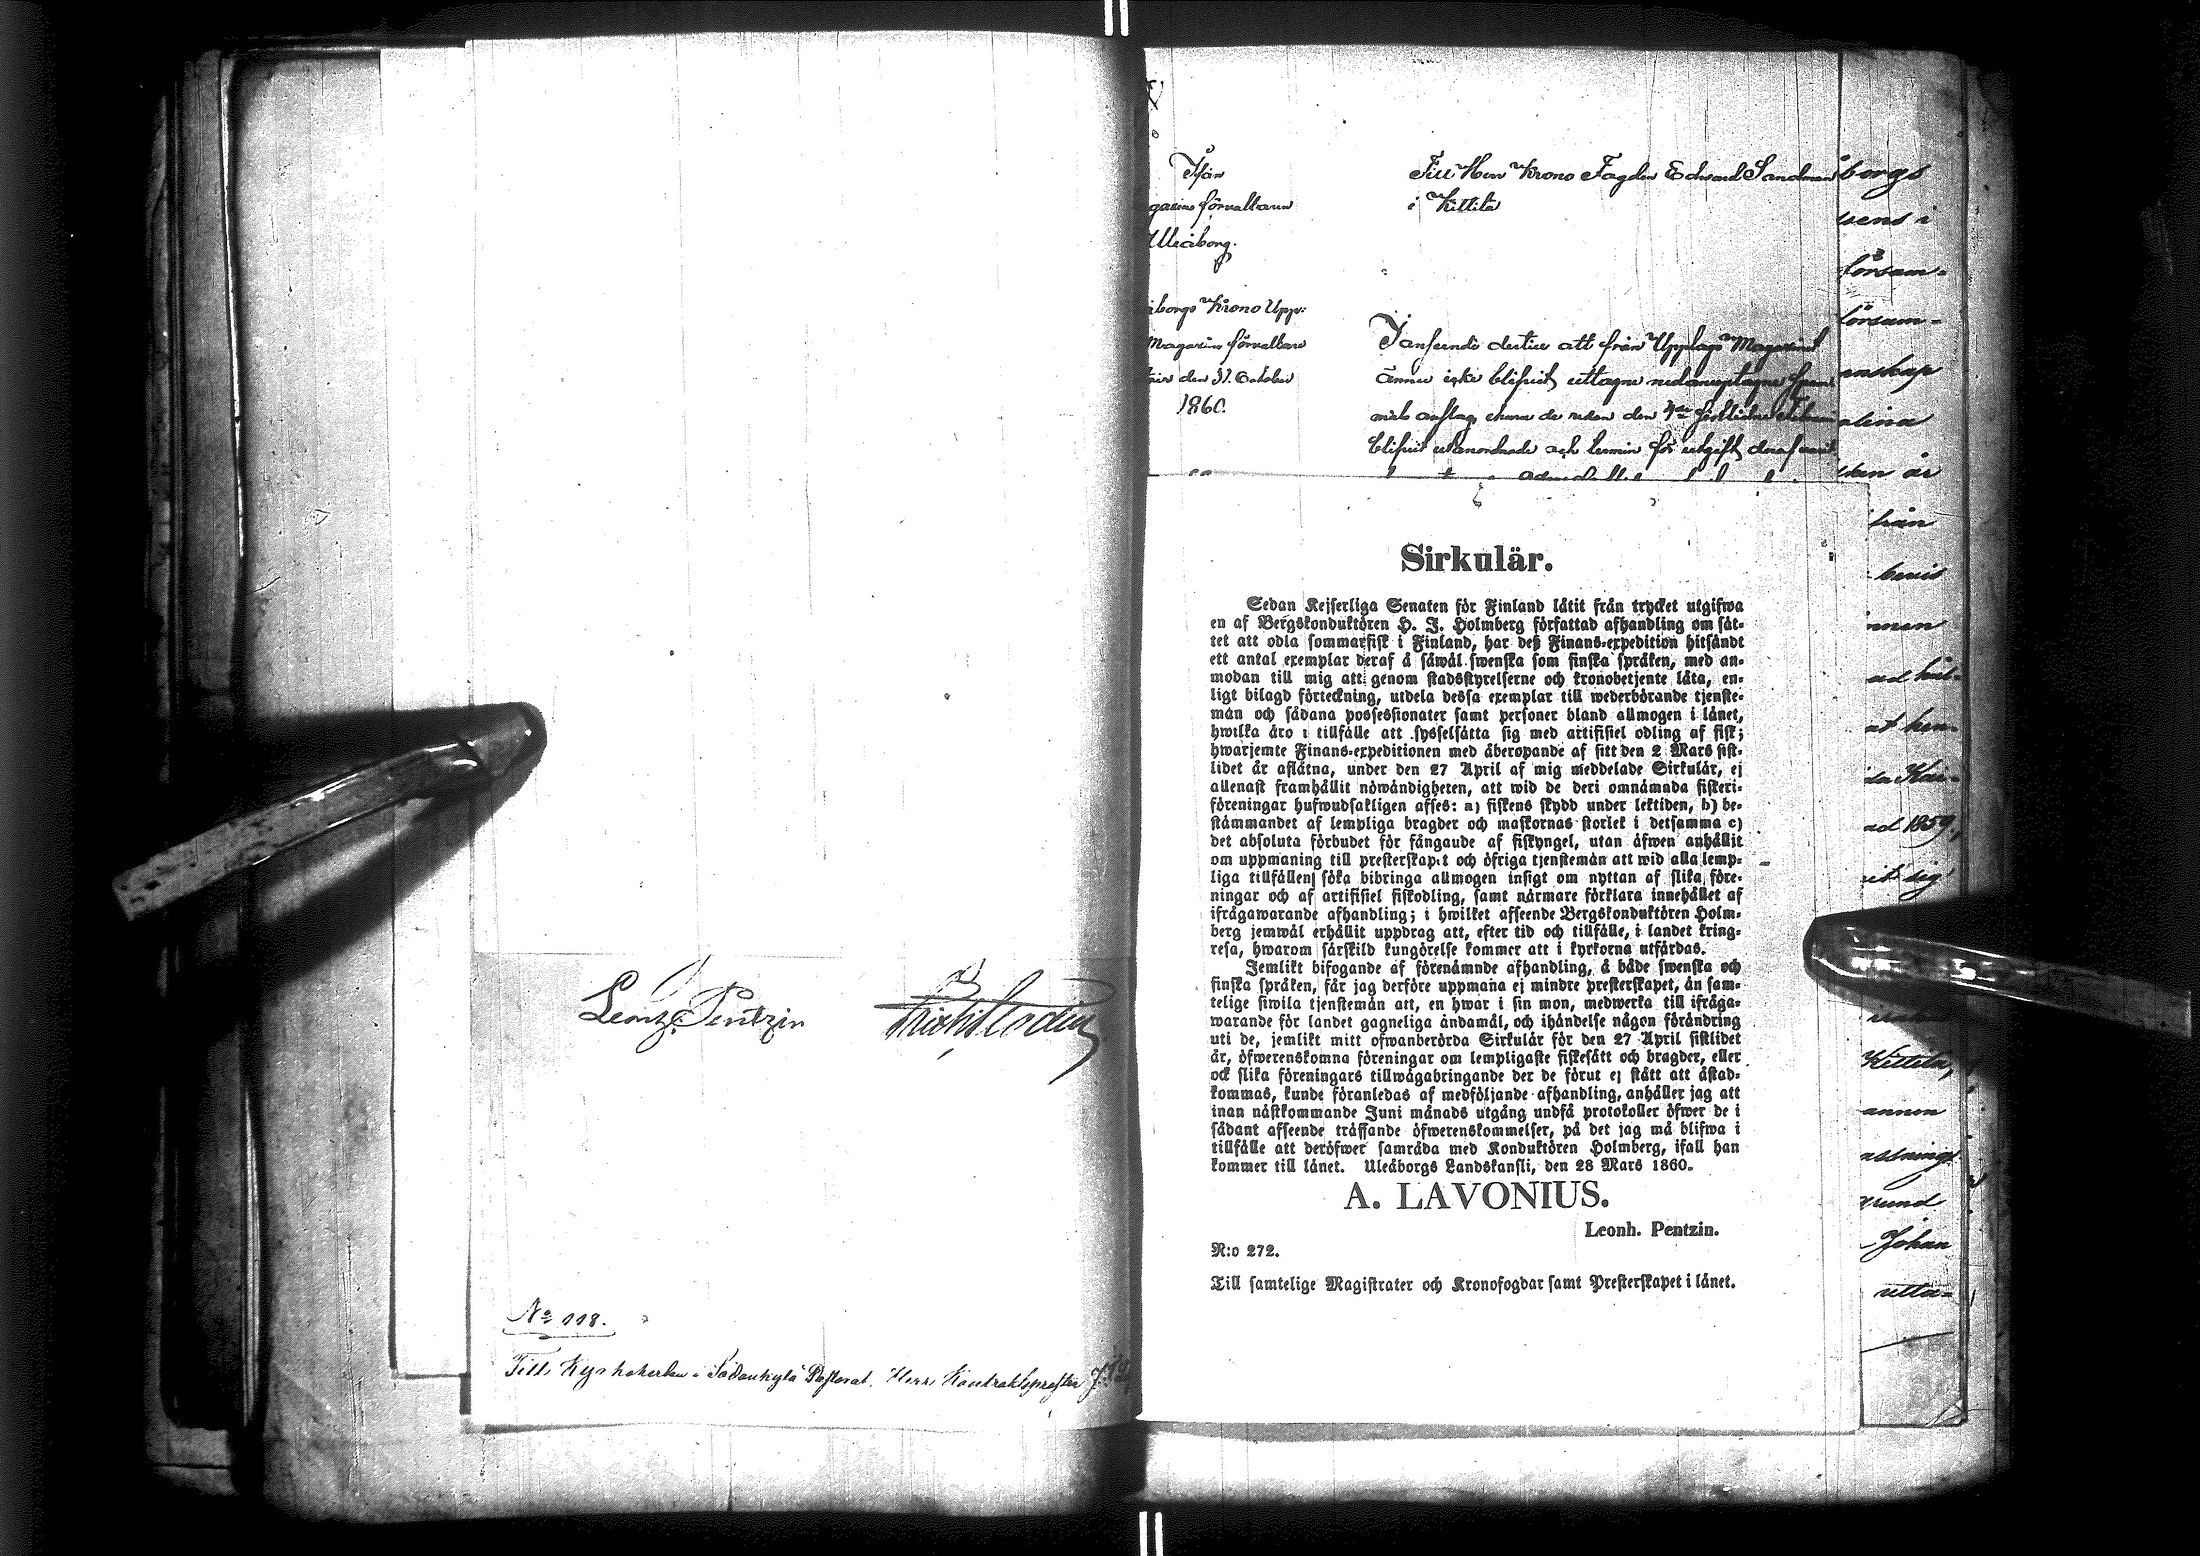 Leonh. Pentzin
No 118.
Till Kyrkoherden i Sodankylä Pastorat, Herr Kontraktsprosten
Från
förvaltaren
Uleåborg.
Krono Upp-
Magasins förvaltare
den 31 October
1860.
Till Herr Krono Fogden Edvard Sandman
i Kittilä
att från Upplags Magasinet
ännu icke blifvit uttagne nedanupptagne
blifvit utanordnade och termin för utgift deraf
Sirkulär.
Sedan Kejserliga Senaten för Finland låtit från trycket utgifwa
en af Bergskonduktören H. J. Holmberg författad afhandling om sät-
tet att odla sommarfisk i Finland, har deß Finans-expedition hitsändt
ett antal exemplar deraf å såwäl swenska som finska språken, med an-
modan till mig att genom stadsstyrelserne och kronobetjente låta, en-
ligt bilagd förteckning, utdela dessa exemplar till wederbörande tjenste-
män och sådana possessionater samt personer bland allmogen i länet,
hwilka äro i tillfälle att sysselsätta sig med artifisiel odling af fisk;
hwarjemte Finans-expeditionen med åberopande af sitt den 2 Mars sist-
lidet år aflåtna, under den 27 April af mig meddelade Sirkulär, ej
allenast framhållit nöwändigheten, att wid de deri omnämnda fiskeri-
föreningar hufwudsakligen afses: a) fiskens skydd under lektiden, b) be-
stämmandet af lempliga bragder och maskornas storlek i detsamma c)
det absoluta förbudet för fångande af fiskyngel, utan äfwen anhållit
om uppmaning till presterskapet och öfriga tjenstemän att wid alla lemp-
liga tillfällen söka bibringa allmogen insigt om nyttan af slika före-
ningar och af artifisiel fiskodling, samt närmare förklara innehållet af
ifrågawarande afhandling; i hwilket afseende Bergskonduktören Holm-
berg jemwäl erhållit uppdrag att, efter tid och tillfälle, i landet kring-
resa, hwarom särskild kungörelse kommer att i kyrkorna utfärdas.
Jemlikt bifogande af förenämnde afhandling, å både swenska och
finska språken, får jag derföre uppmana ej mindre presterskapet, än sam-
telige siwila tjenstemän att, en hwar i sin mon, medwerka till ifråga-
warande för landet gagneliga ändamål, och ihändelse någon förändring
uti de, jemlikt mitt ofwanberörda Sirkulär för den 27 April sistlidet
år, öfwerenskomna föreningar om lempligaste fiskesätt och bragder, eller
ock slika föreningars tillwägabringande der de förut ej stått att åstad-
kommas, kunde föranledas af medföljande afhandling, anhåller jag att
inan nästkommande Juni månads utgång undfå protokoller öfwer de i
sådant afseende träffande öfwerenskommelser, på det jag må blifwa i
tillfälle att deröfwer samråda med Konduktören Holmberg, ifall han
kommer till länet. Uleåborgs Landskansli, den 28 Mars 1860.
A. LAVONIUS.
Leonh. Pentzin.
N:o 272.
Till samtelige Magistrater och Kronofogdar samt Presterskapet i länet.
borgs
församl-
församl-
från
bevis
ad 1859,
Kittilä,
annon
grund
Johan